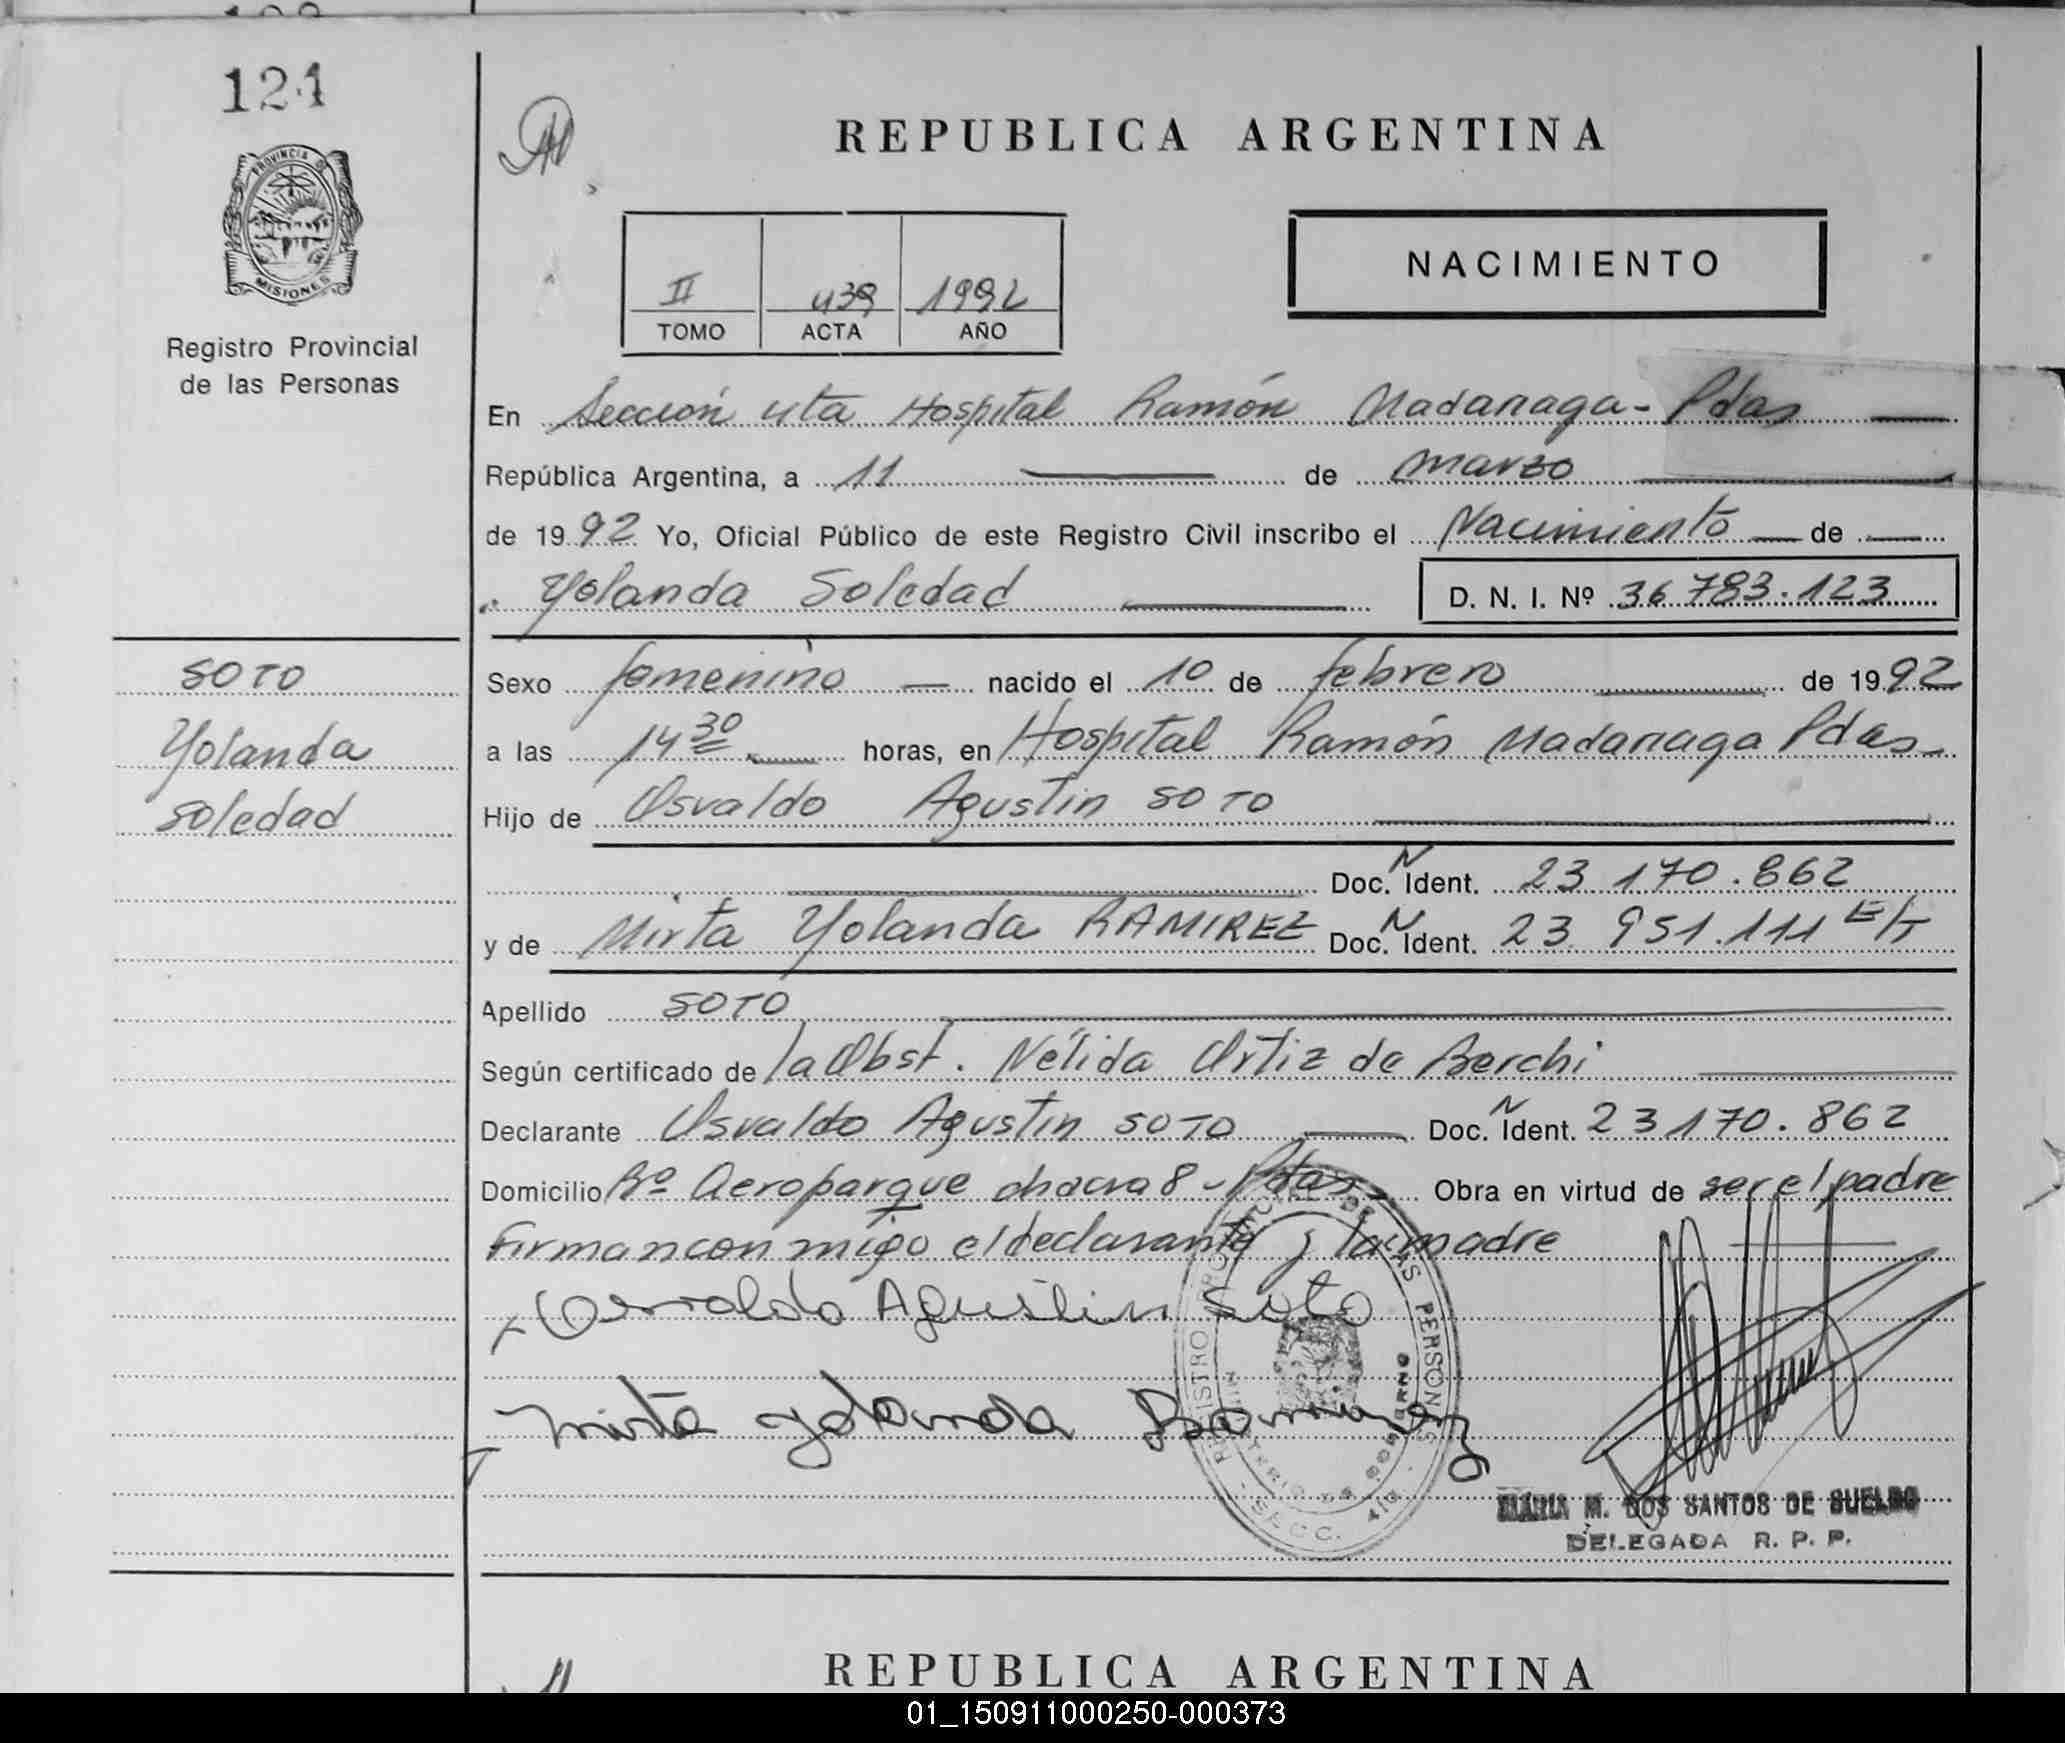 124
PROVINCIA DE
MISIONES
Registro Provincial
de las Personas
REPUBLICA ARGENTINA
II 439 1992
TOMO ACTA AÑO
NACIMIENTO
En Sección 4ta Hospital Ramón Madariaga - Pdas
República Argentina, a 11 de marzo
de 1992 Yo, Oficial Público de este Registro Civil inscribo el Nacimiento de
Yolanda Soledad D. N. I. Nº 36 783.123
SOTO
Yolanda
Soledad
Sexo femenino nacido el 10 de febrero de 1992
a las 14 30 horas, en Hospital Ramón Madariaga Pdas
Hijo de Osvaldo Agustin SOTO
Doc. N Ident. 23 170.862
y de Mirta Yolanda RAMIREZ Doc. N Ident. 23 951.111 E/T
Apellido SOTO
Según certificado de la Obst. Nélida Ortiz de Berchi
Declarante Osvaldo Agustin SOTO Doc. N Ident. 23 170.862
Domicilio Bº Aeroparque chacra 8 - Pdas Obra en virtud de ser el padre
Firman conmigo el declarante y la madre
Osvaldo Agustin Soto
Mirta Yolanda Ramirez
REGISTRO PROVINCIAL DE LAS PERSONAS
MINISTERIO DE GOBIERNO
SECC. 4ta
MARIA M. DOS SANTOS DE SUELDO
DELEGADA R. P. P.
REPUBLICA ARGENTINA
01_150911000250-000373